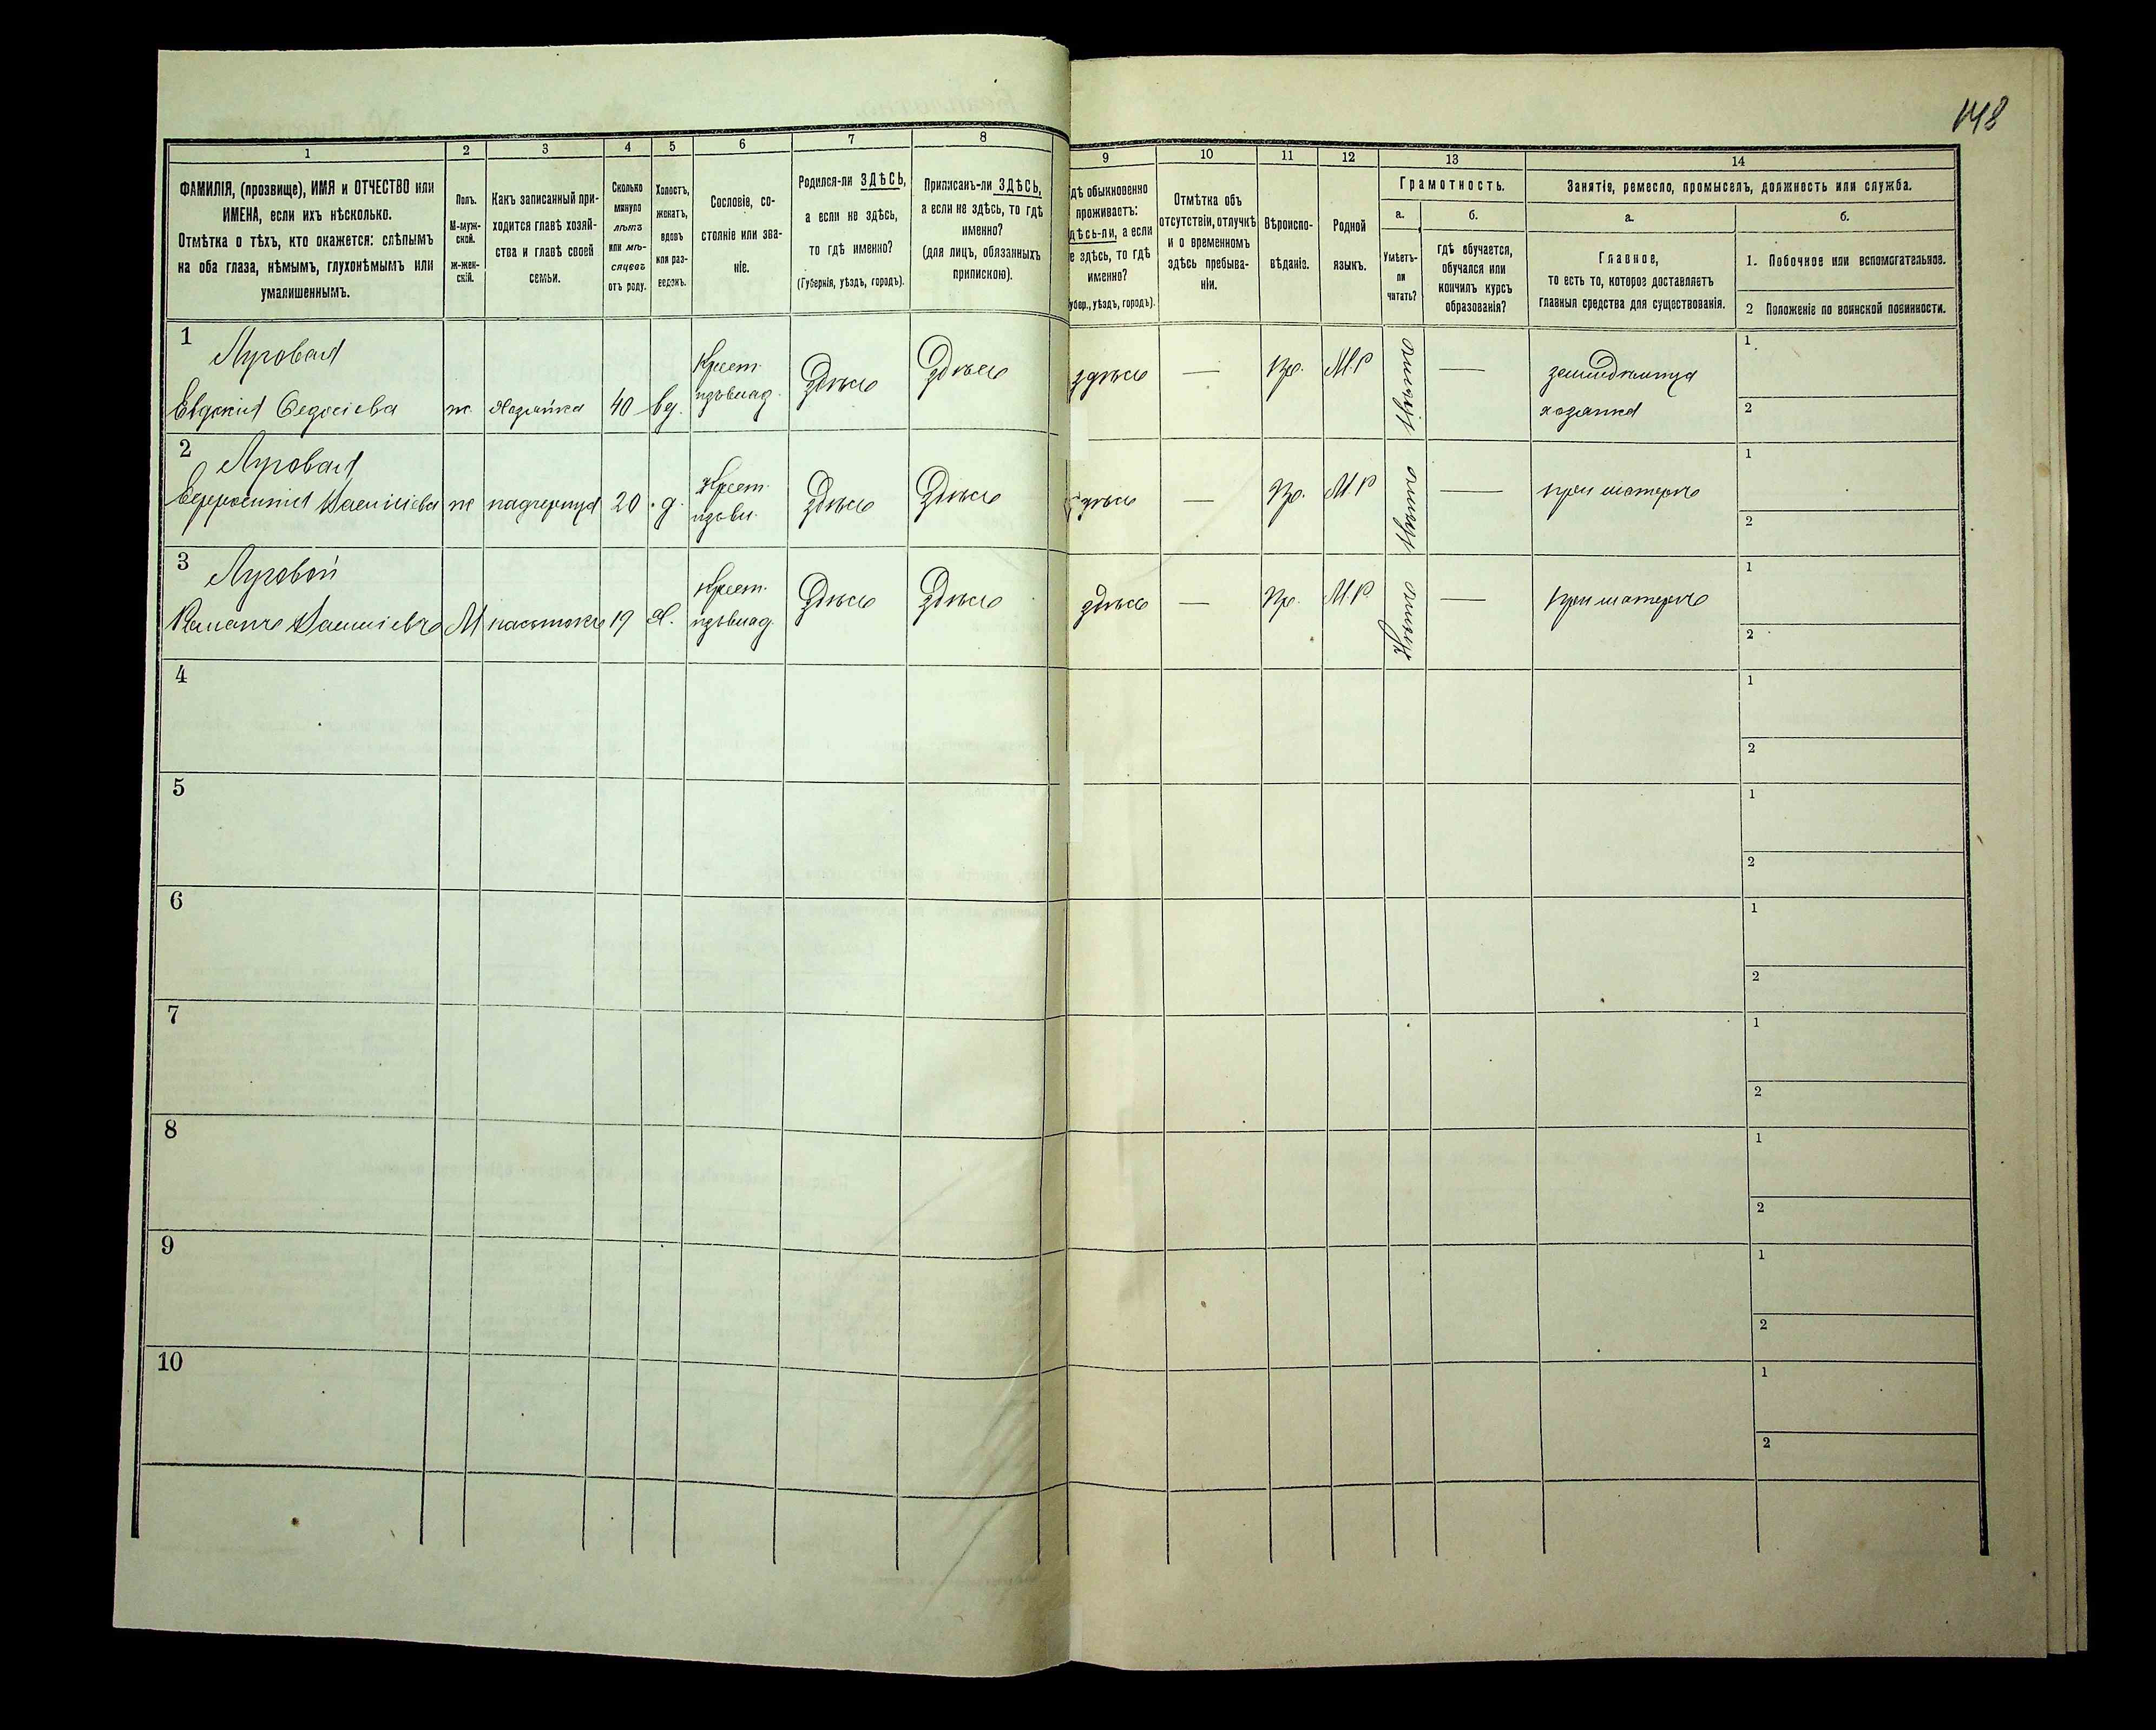 148
1
2
3
4
5
6
7
8
ФАМИЛІЯ, (прозвище), ИМЯ и ОТЧЕСТВО или
ИМЕНА, если ихъ нѣсколько.
Отмѣтка о тѣхъ, кто окажется: слѣпымъ
на оба глаза, нѣмымъ, глухонѣмымъ или
умалишеннымъ.
Полъ.
М-муж-
ской.
ж-жен-
скій.
Какъ записанный при-
ходится главѣ хозяй-
ства и главѣ своей
семьи.
Сколько
минуло
лѣтъ
или мѣ-
сяцевъ
отъ роду.
Холостъ,
женатъ,
вдовъ
или раз-
веденъ.
Сословіе, со-
стояніе или зва-
ніе.
Родился-ли ЗДѢСЬ,
а если не здѣсь,
то гдѣ именно?
(Губернія, уѣздъ, городъ).
Приписанъ-ли ЗДѢСЬ,
а если не здѣсь, то гдѣ
именно?
(для лицъ, обязанныхъ
припискою).
9
10
11
12
13
14
дѣ обыкновенно
проживаетъ:
дѣсь-ли, а если
е здѣсь, то гдѣ
именно?
убер., уѣздъ, городъ).
Отмѣтка объ
отсутствіи, отлучкѣ
и о временномъ
здѣсь пребыва-
ніи.
Вѣроиспо-
вѣданіе.
Родной
языкъ.
Грамотность.
а.
б.
Умѣетъ-
ли
читать?
гдѣ обучается,
обучался или
кончилъ курсъ
образованія?
Занятіе, ремесло, промыселъ, должность или служба.
а.
б.
Главное,
то есть то, которое доставляетъ
главныя средства для существованія.
1. Побочное или вспомогательное.
2 Положеніе по воинской повинности.
1
Луговая
Евдокия Федосіева
ж.
Хозяйка
40
вд.
Крест.
здѣсь
здѣсь
здѣсь
—
Пр.
М.Р
—
хозяйка
1
2
2
Луговая
ж
падчерица
20
д.
Крест.
здѣсь
здѣсь
—
Пр.
М.Р
—
при матери
1
2
3
Луговой
М
пасынокъ
19
Х.
Крест.
здѣсь
здѣсь
здѣсь
—
Пр.
М.Р.
—
при матери
1
2
4
1
2
5
1
2
6
1
2
7
1
2
8
1
2
9
1
2
10
1
2